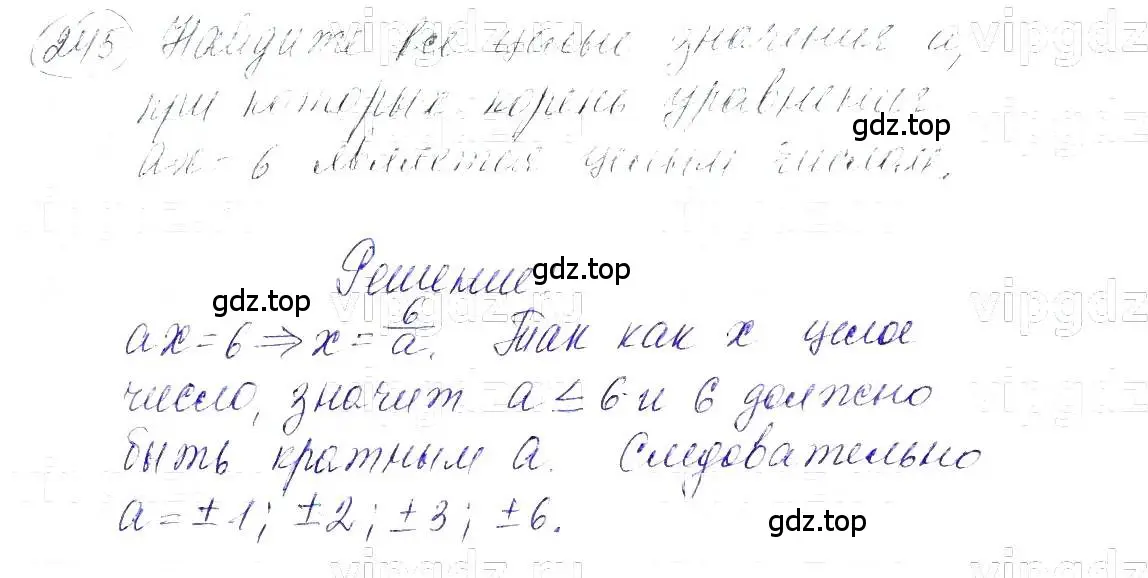 245 Найдите все целые значения a,
при которых корень уравнения
ax = 6 является целым числом.
gdz.top
Решение
gdz.top
gdz.top
ax = 6 ⇒ x = 6/a. Так как x целое
число, значит a ≤ 6 и 6 должно
быть кратным a. Следовательно
a = ±1; ±2; ±3; ±6.
gdz.top
vipgdz.ru